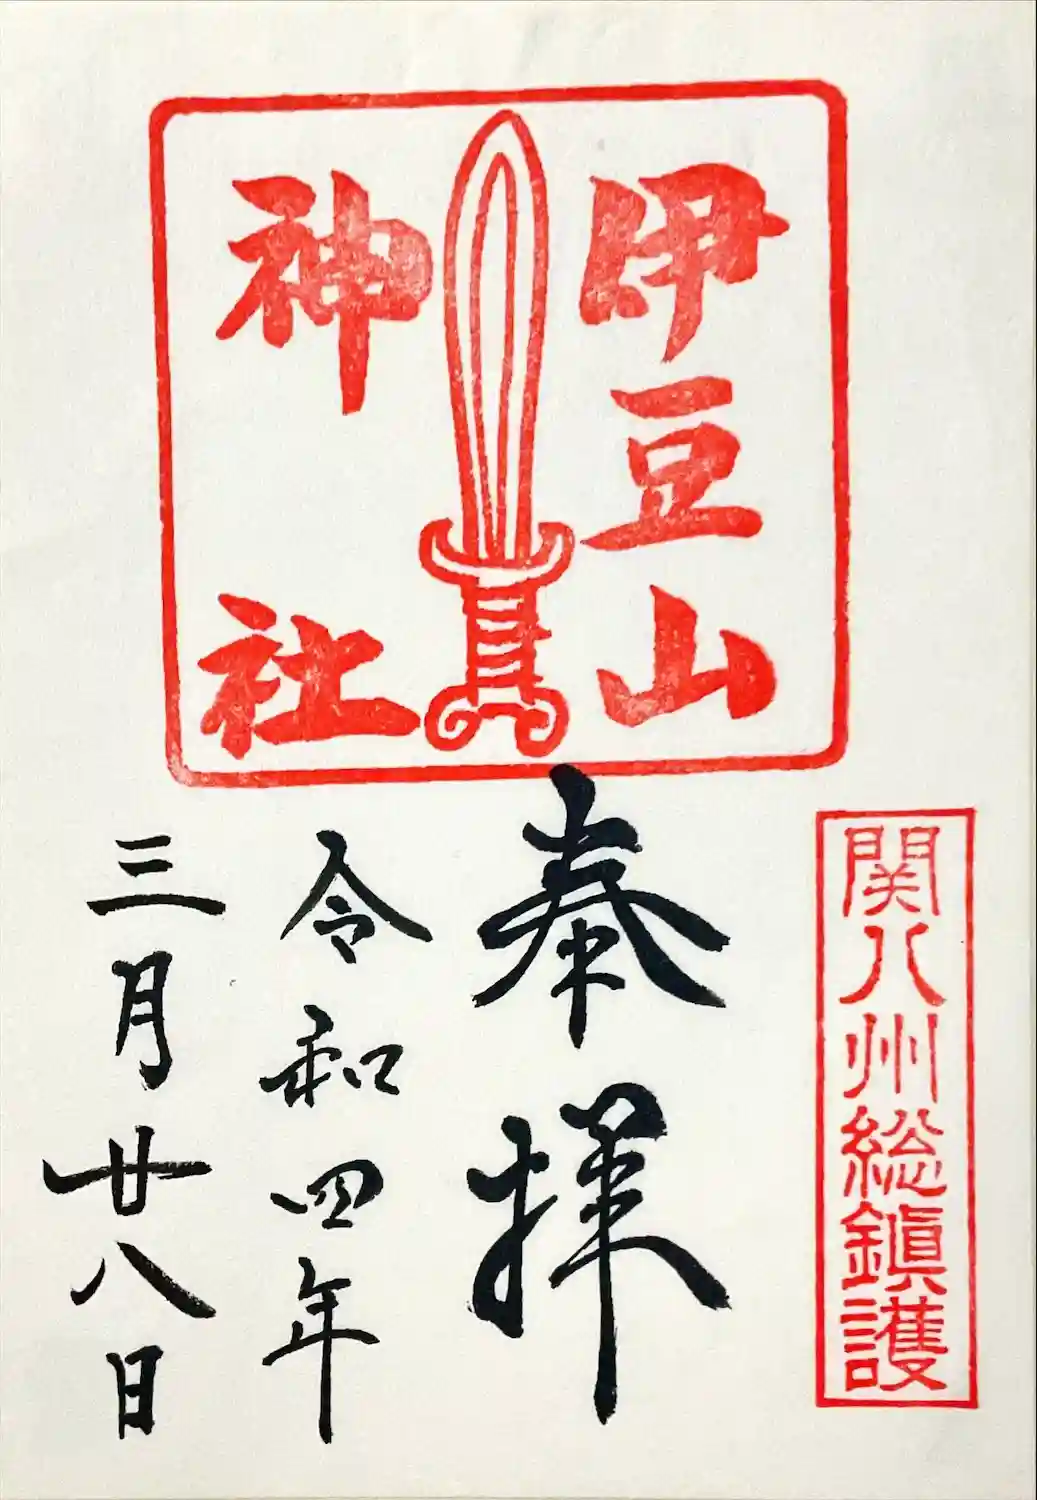 伊豆山
神社
関八州総鎮護
奉拝
令和四年
三月廿八日